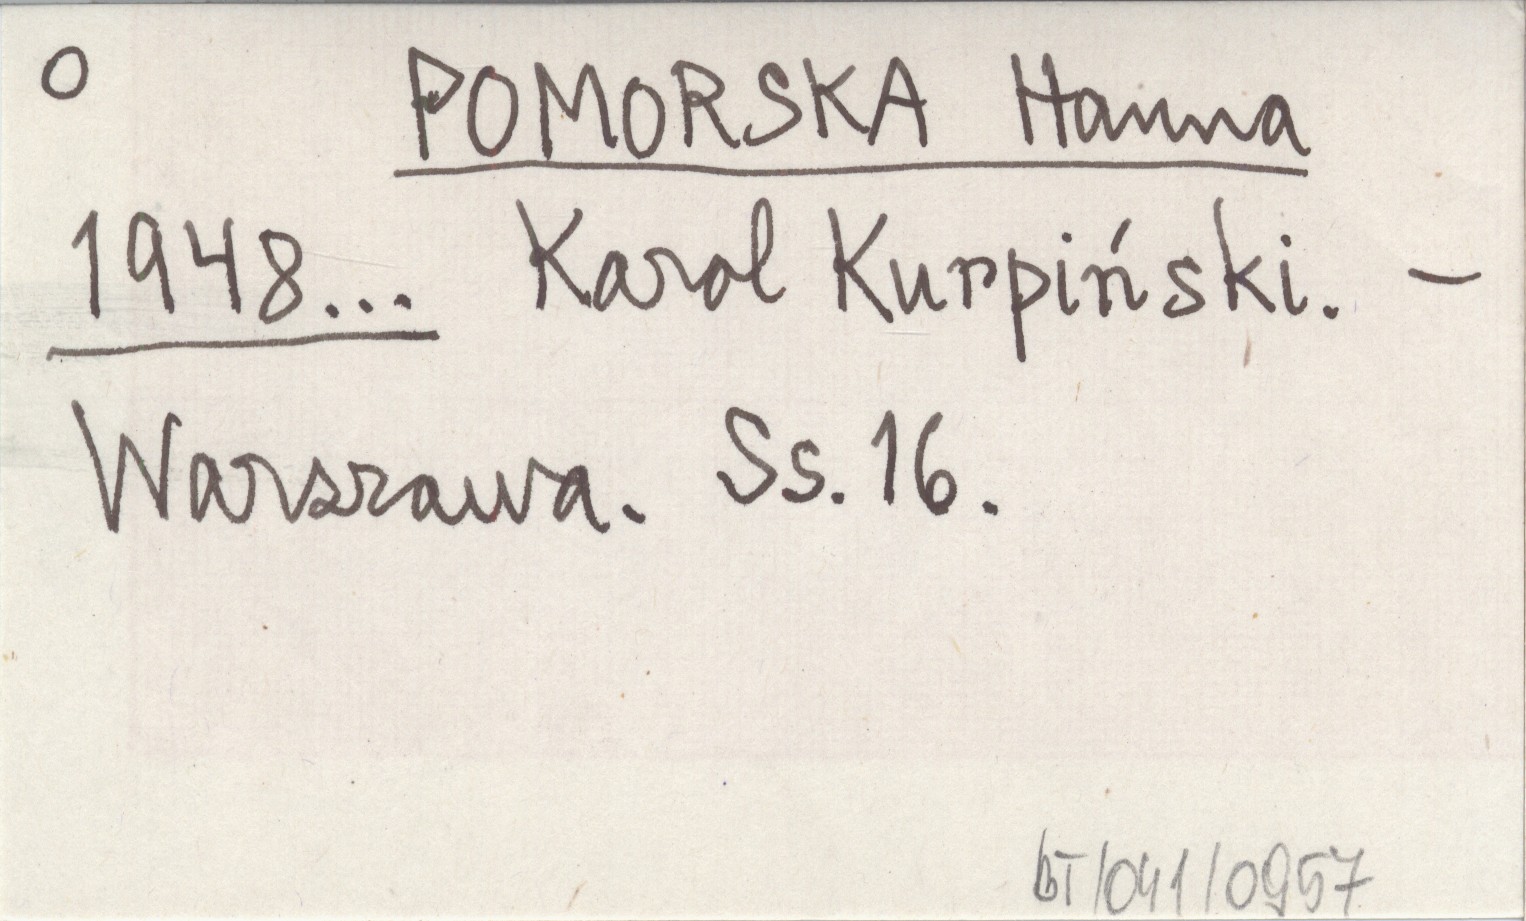 O POMORSKA Hanna
1948... Karol Kurpiński. –
Warszawa. Ss. 16.
bT/041/0957